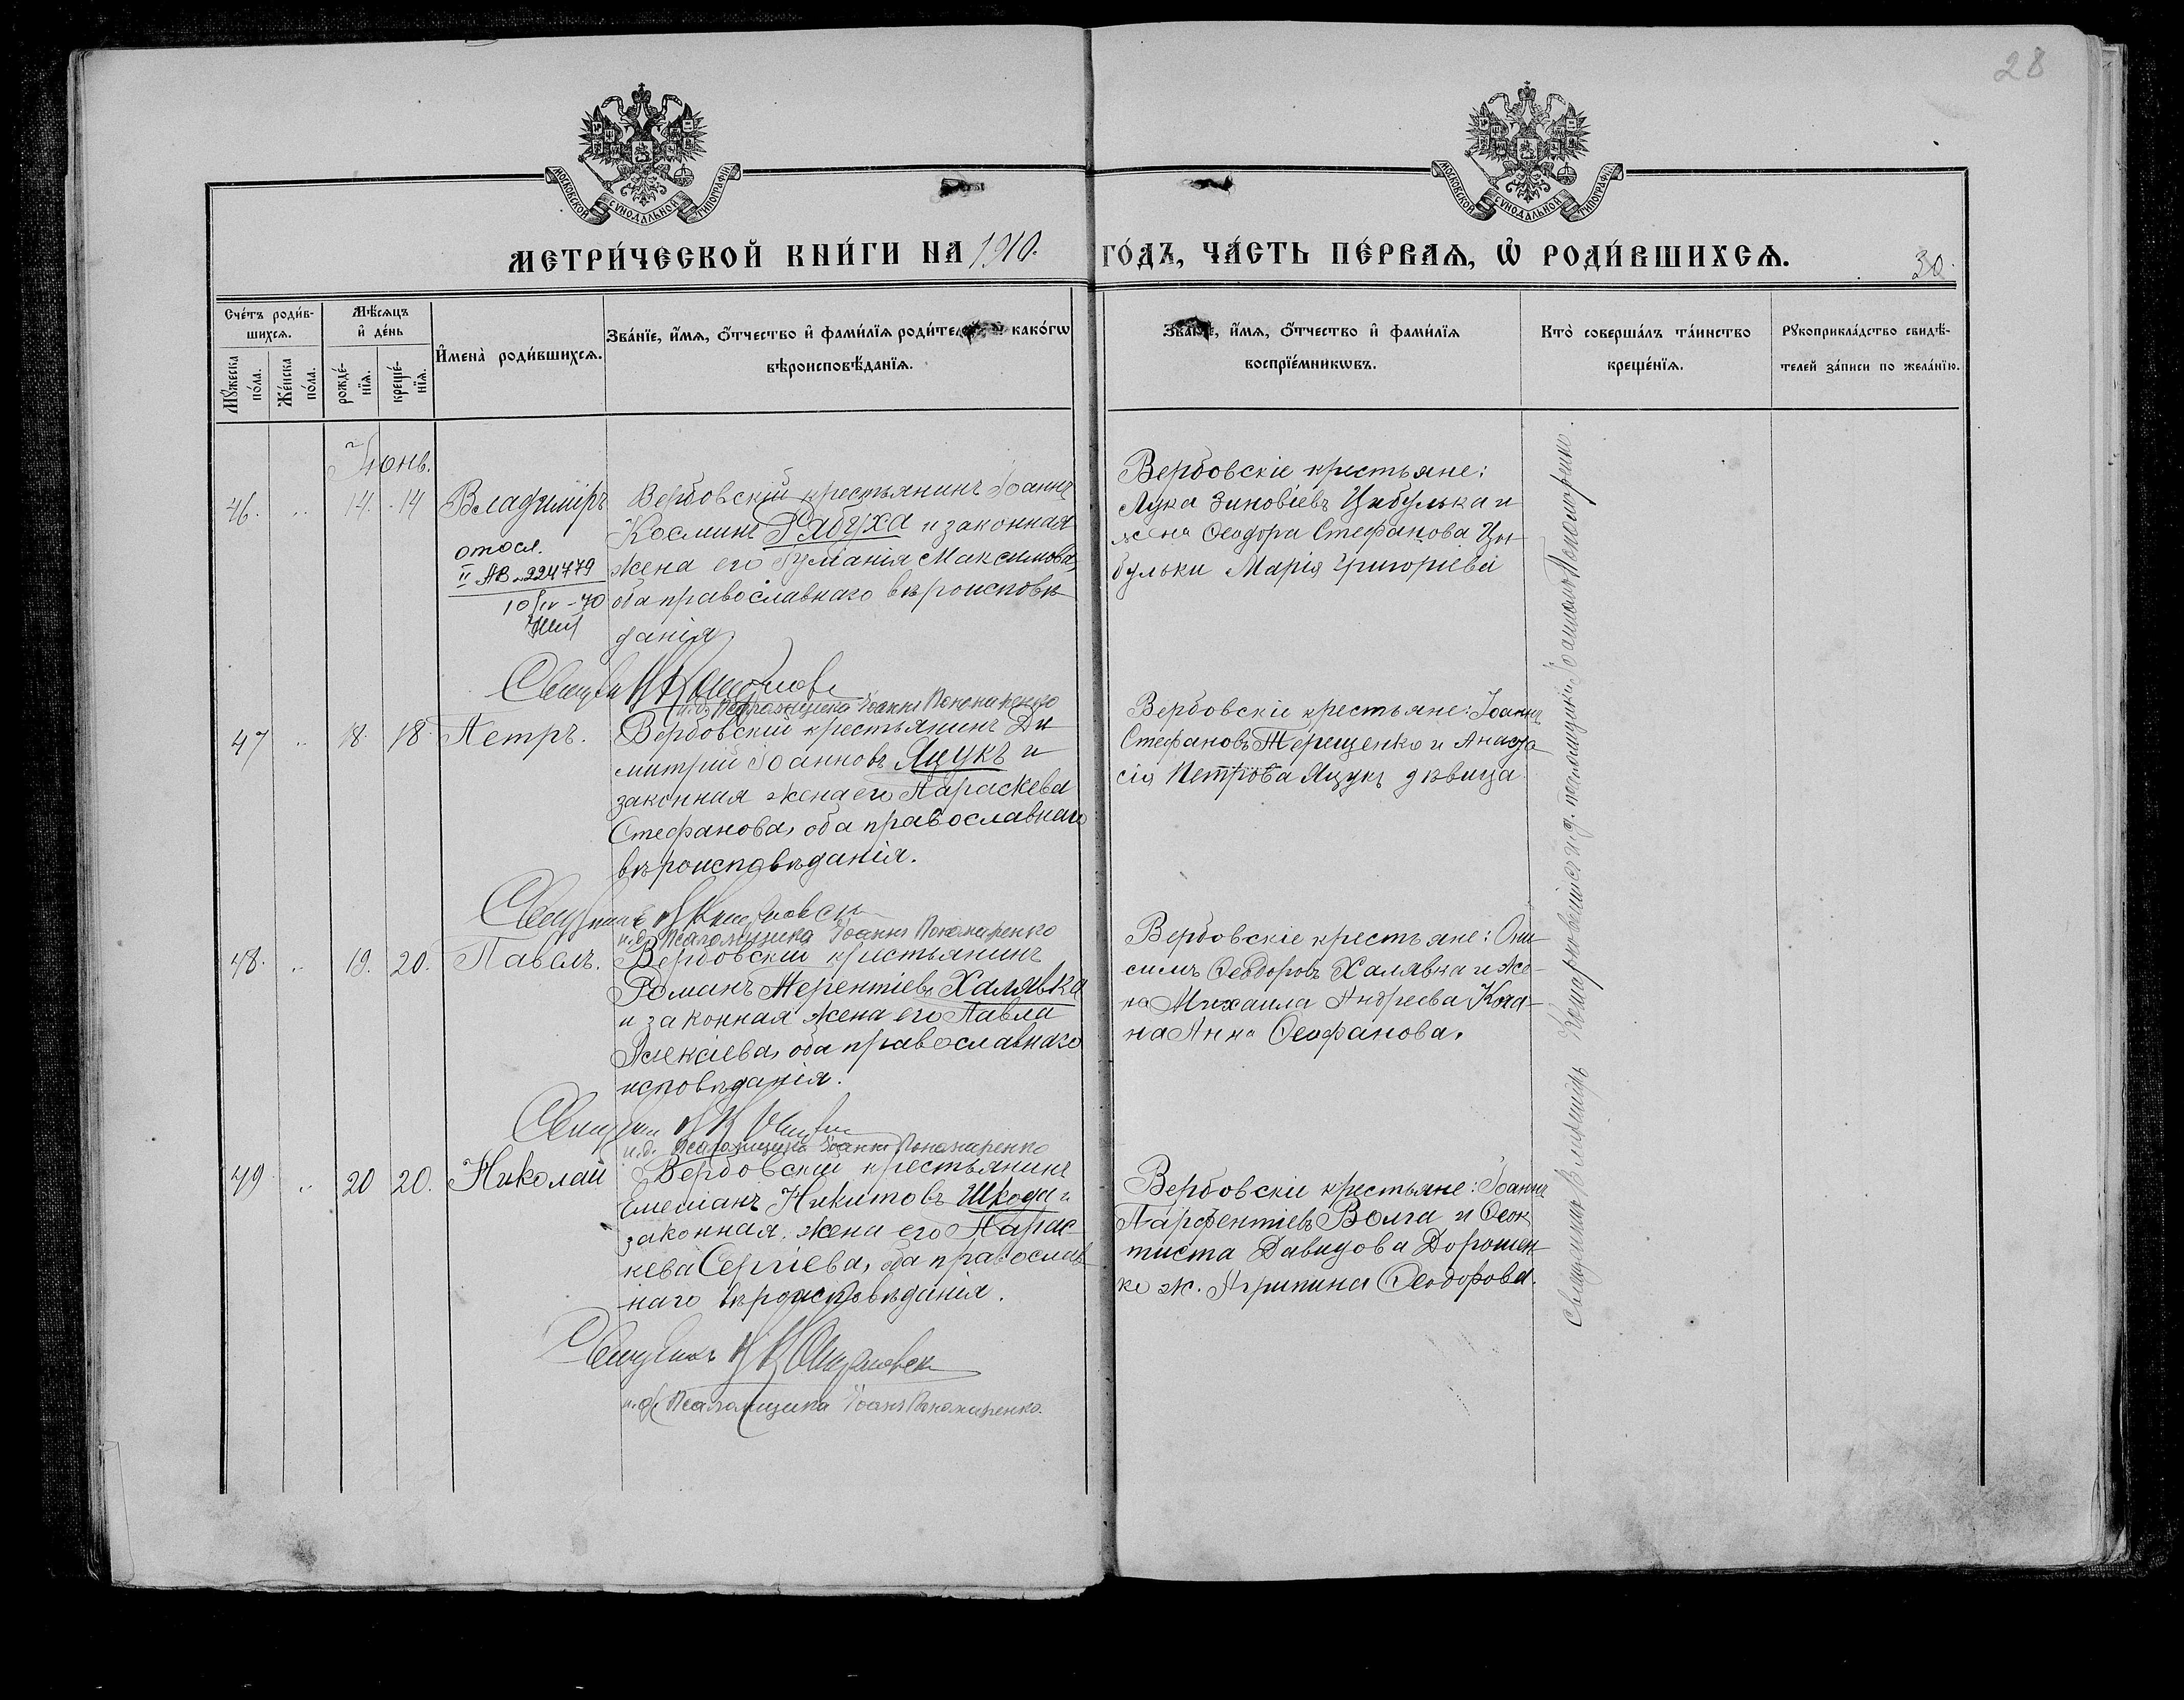 28
МОСКОВСКОЙ СУНОДАЛЬНОЙ ТИПОГРАФІИ
МОСКОВСКОЙ СУНОДАЛЬНОЙ ТИПОГРАФІИ
МЕТРИ́ЧЕСКОЙ КНИ́ГИ НА 1910. ГО́ДЪ, ЧА́СТЬ ПЕ́РВАѦ, Ѽ РОДИ́ВШИХСѦ.
30.
Сче́тъ роди́в-
шихсѧ.
Мꙋ́жеска
по́ла.
Же́нска
по́ла.
Мѣ́сѧцъ
и҆ де́нь
рожде́-
нїѧ.
креще́-
нїѧ.
И҆мена̀ роди́вшихсѧ.
Зва́нїе, и҆́мѧ, ѻ҆́тчество и҆ фами́лїѧ роди́телей, и҆ како́гѡ
вѣроисповѣ́данїѧ.
Зва́нїе, и҆́мѧ, ѻ҆́тчество и҆ фами́лїѧ
воспрїе́мникѡвъ.
Кто̀ соверша́лъ та́инство
креще́нїѧ.
Рꙋкоприкла́дство свидѣ́-
телей за́писи по жела́нїю.
Іюнь.
46. „ 14. 14 Владиміръ
отосл.
II АВ 224779
10/IV-70
Вербовскій крестьянинъ Іоаннъ
Косминъ Рябуха и законная
жена его Максимова,
оба православнаго вѣроисповѣ
данія
и.д. Псаломщика Іоаннъ Пономаренко
Вербовскіе крестьяне:
Лука Зиновіевъ Цыбулька и
жена Ѳеодора Стефанова Цы-
бульки Марія Григоріева
47 „ 18. 18. Петръ.
Вербовскій крестьянинъ Ди
митрій Іоанновъ Яцукъ и
законная жена его Параскева
Стефанова, оба православнаго
вѣроисповѣданія.
и.д. Псаломщика Іоаннъ Пономаренко
Вербовскіе крестьяне: Іоаннъ
Стефановъ Терещенко и Анаста
сія Петрова Яцукъ дѣвица
48. „ 19. 20. Павелъ.
Вербовскій крестьянинъ
Романъ Терентіевъ Халявка
и законная жена его Павла
Алексіева, оба православнаго
исповѣданія.
и.д. Псаломщика Іоаннъ Пономаренко
Вербовскіе крестьяне: Они
симъ Ѳеодоровъ Халявка и же-
на Михаила Андреева
на Анна Ѳеофанова.
49 „ 20 20. Николай
Вербовскій крестьянинъ
Емеліанъ Никитовъ Шкода и
законная жена его Парас-
кева Сергіева, оба православ
наго вѣроисповѣданія.
и.д. Псаломщика Іоаннъ Пономаренко.
Вербовскіе крестьяне: Іоаннъ
Парфентіевъ Волга и Ѳеок
тиста Давидова Дорошен
ко ж. Агрипина Ѳеодорова.
Священникъ и.д. псаломщика Іоаннъ Пономаренко.